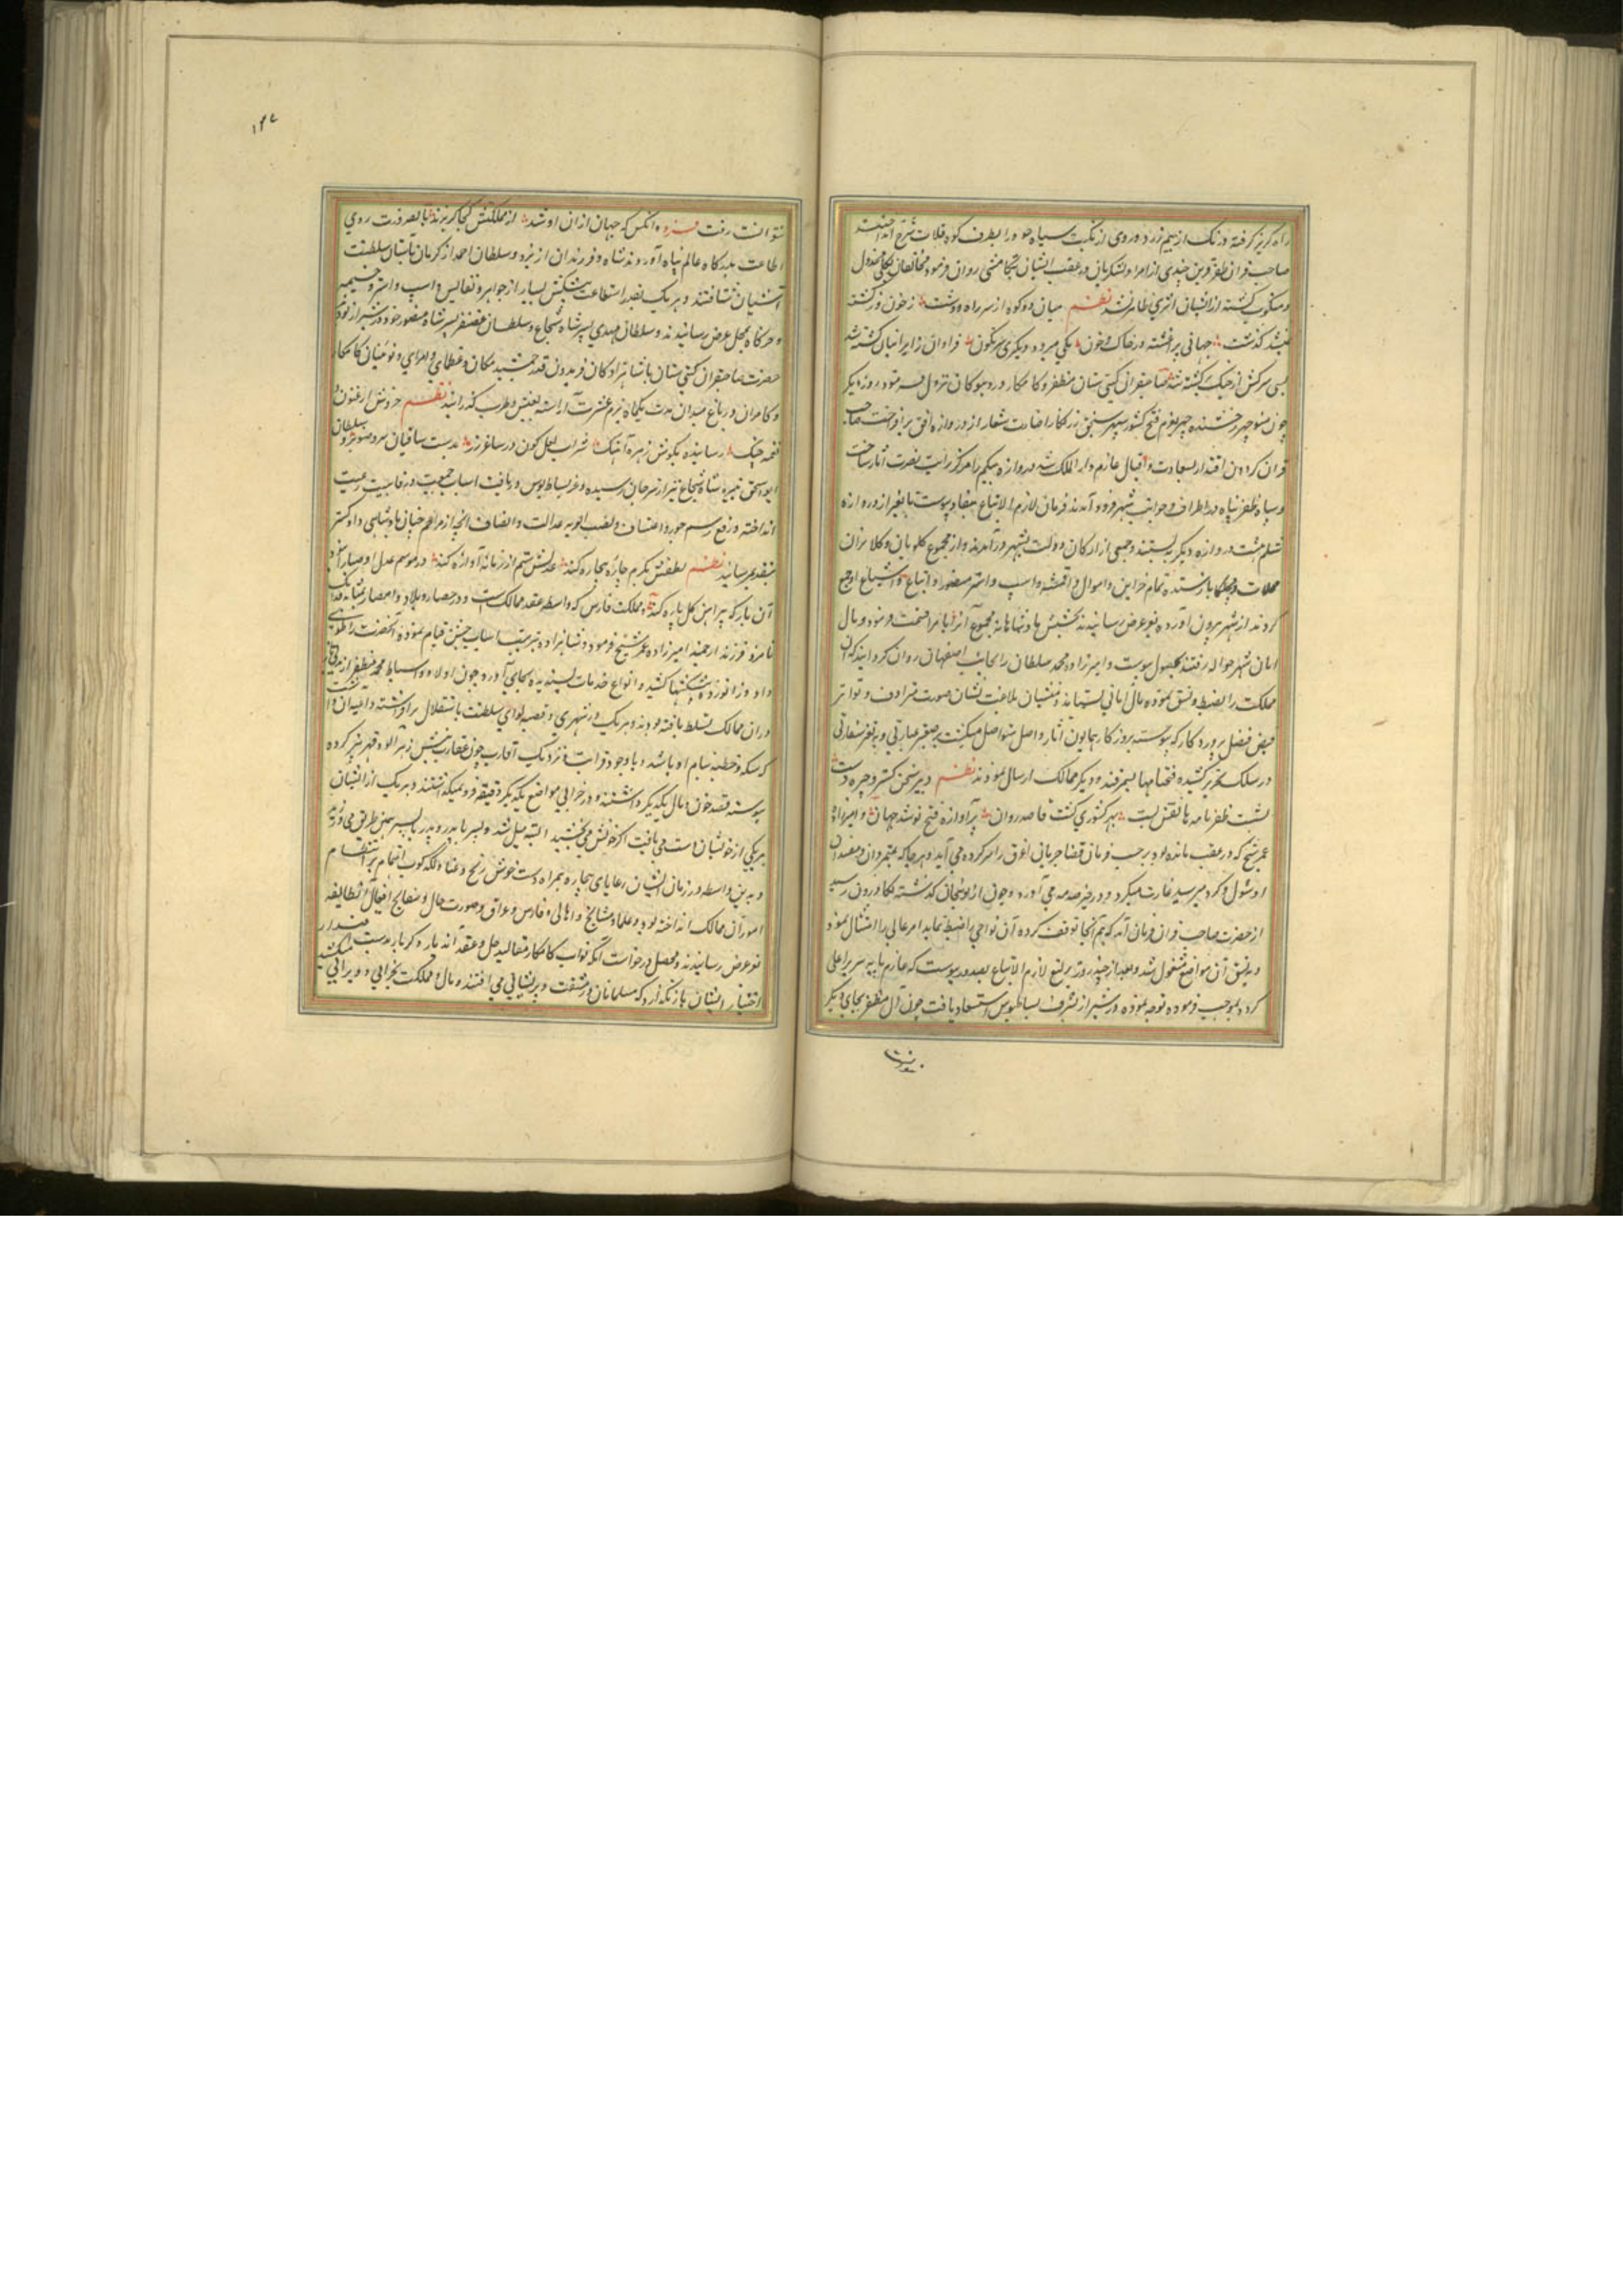 راه گریز گرفته و رنگ از بیم زرد و روی از نکبت سیاه خود را بطرف کوه قلات سرخ انداختند
صاحب قران ظفر قرین چندی از امرا و لشکریان در عقب ایشان تکامشی روان فرمود مخالفان بکلی مخذول
و منکوب گشته از ایشان اثری ظاهر نشد نظم میان دو کوه از سر راه و دشت ز خون کشته
نبشد گذشت جهانی پر آغشته در خاک و خون یکی مرده و دیگری سرنگون فراوان ز ایرانیان کشته شد
بسی سرکش از جنگ برگشته شد صاحبقران گیتی ستان مظفر و کامکار در دیبوکان نزول فرمود و روز دیگر
چون منوچهر رخشنده چهر بعزم فتح کشور سپهر سنجق زرنگار اضاءت شعار از دروازه افق برافروخت صاحب
قران گردون اقتدار بسعادت و اقبال عازم دار الملک شد و دروازه سلم را مرکز رایت نصرت آثار ساخت
و سپاه ظفر پناه در اطراف و جوانب شهر فرود آمدند و فرمان لازم الاتباع بنفاد پیوست تا بغیر از دروازه
سلم هشت دروازه دیگر ببستند و جمعی از ارکان دولت بشهر در آمدند و از مجموع کلویان و کلانتران
محلات مچلکا باز ستده تمام خزاین و اموال و اقمشه و اسپ و استر منصور و اتباع و اشیاع او جمع
کردند از شهر بیرون آورده بعز عرض رسانیدند بخشش پادشاهانه مجموع آنرا بامرا قسمت فرمود و مال
امان شهر حواله رفتند بحصول پیوست و امیرزاده محمد سلطان را بجانب اصفهان روان گردانید که آن
مملکت را ضبط و نسق نموده مال امانی بستاند و منشیان بلاغت نشان صورت ترادف و تواتر
فیض فضل پروردگار که پیوسته بروزگار همایون آثار و اصل متواصل میگشت بر صغیر عبارتی و بر ثغر سفارتی
در سلک تحریر کشیده فتحنامها بسمرقند و دیگر ممالک ارسال نمودند نظم دبیر سخن گستر و چیره دست
بشست ظفر نامه ها نقش بست بهر کشوری گشت قاصد روان پر آوازه فتح نو شد جهان و امیرزاده
عمر شیخ که در عقب مانده بود بر حسب فرمان قضا جریان اغرق را سر کرده می آید و هر جا که متمردان و مفسدان
او شول و کرد میرسید غارت میکرد و در حیز صدمه می آورد و چون از نوبنجان گذشته بکازرون رسید
از حضرت صاحب قران فرمان آمد که هم آنجا توقف کرده آن نواحی را ضبط نماید امر عالی را امتثال نمود
و بنسق آن مواضع مشغول شد و بعد از چند روز یرلیغ لازم الاتباع بصدور پیوست که عازم پایه سریر اعلی
گردد بموجب فرموده توجه نموده در شیراز بشرف بساط بوس استسعاد یافت چون آل مظفر بجای دیگر
نتوانست
۱۴۷
نتوانست رفت فرد آنکس که جهان از آن او شد از مملکتش کجا گریزند بضرورت روی
اطاعت بدرگاه عالم پناه آوردند شاه و فرزندان از یزد و سلطان احمد از کرمان بآستان سلطنت
آشیان شتافتند و هر یک بقدر استطاعت پیشکش بسیار از جواهر و نفایس و اسپ و استر و خیمه
و خرگاه بمحل عرض رسانیدند و سلطان مهدی پسر شاه شجاع و سلطان غضنفر پسر شاه منصور خود در شیراز بود
حضرت صاحبقران گیتی ستان با شاهزادگان فریدون قدر جمشید مکان و عظمای امرای و نوینان کامکار
و کامران در باغ میدان مدت یکماه بزم عشرت آراسته بعیش و طرب گذرانید نظم خروش ارغنون و
نغمه چنگ رسانیده بگوش زهره آهنگ شراب لعل گون در ساغر زر بدست ساقیان سرو صنوبر و سلطان
ابو اسحق نبیره شاه شجاع نیز از سرجان رسیده و عز بساط بوس دریافت اسباب جمعیت و رفاهیت رعیت
انداخته و رفع رسم جور و اعتساف و نصب الویه عدالت و انصاف انچه از مراحم جهانپادشاهی دادگستر
بتقدیم رسانید نظم لطفش بکرم چاره بیچاره کند عدلش ستم از زمانه آواره کند در موسم عدل او صبا را نبود
آن یارا که پیراهن گل پاره کند و مملکت فارس که واسطه عقد ممالک است و در حصار و بلاد و امصار بمثابه
نامزد فرزند ارجمند امیرزاده عمر شیخ فرمود و شاهزاده بترتیب اسباب جشن قیام نموده آنحضرت را طوی
داد و زانو زده پیشکشها کشید و انواع خدمات پسندیده بجای آورد و چون اولاد و اسباط محمد مظفر از
در آن ممالک تسلط یافته بودند و هر یک در شهری و قصبه لوای سلطنت باستقلال برافراشته داعیه آن داشت
که سکه و خطبه بنام او باشد و با وجود قرابت نزدیک اقارب چون عقارب نیش زهر آلود قهر تیز کرده
پیوسته قصد خون و مال یکدیگر داشتند و در خرابی مواضع یکدیگر دقیقه فرو نمیگذاشتند و هر یک از ایشان
بر یکی از خویشان دست می یافت اگر خونش می بخشید البته میل کشیده پسر با پدر و پدر با پسر همین طریق می ورزید
و بدین واسطه در زمان ایشان رعایای بیچاره همواره دستخوش رنج و عنا و لگدکوب اقتحام بر انتظام
امور آن ممالک انداخته بود و علما و مشایخ و اهالی فارس و عراق صورت حال و قبایح افعال آن طایفه
بعز عرض رسانیدند و محصل درخواست آنکه نواب کامکار مقالید حل و عقد آن دیار را دیگر باره بدست
اختیار ایشان باز نگذارد که مسلمانان در مشقت و پریشانی می افتند و مال مملکت بخرابی و ویرانی میکشد